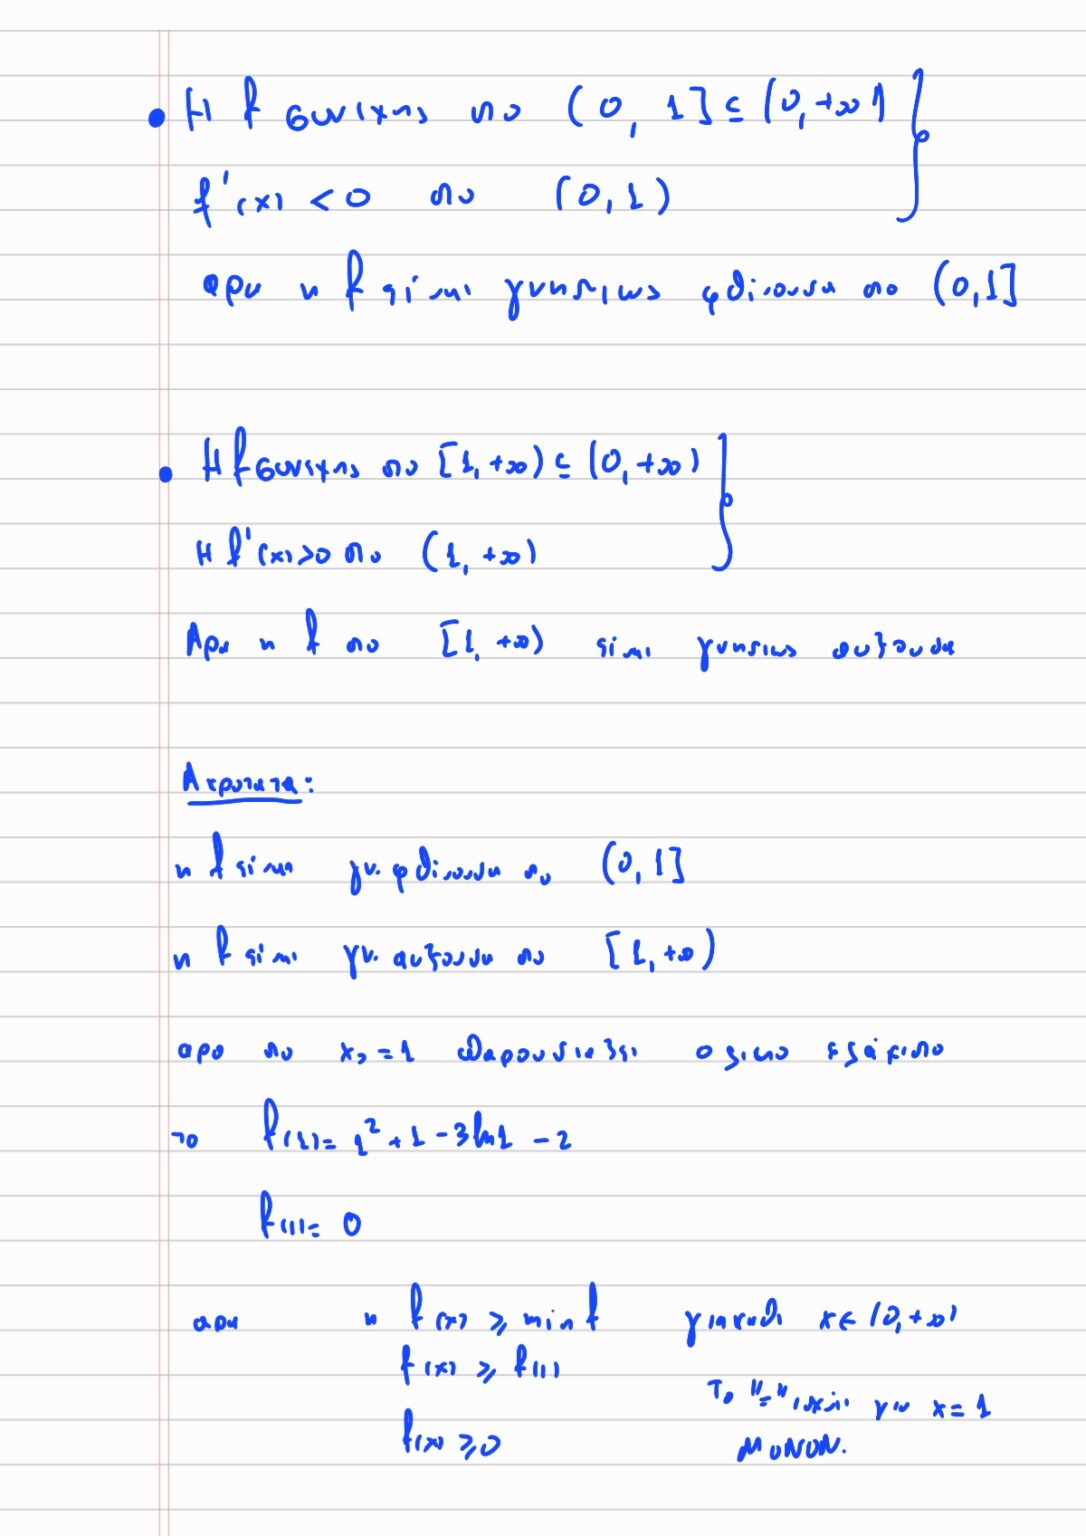 • Η f συνεχης στο (0, 1] ⊆ (0, +∞)
f'(x) < 0 στο (0, 1)
αρα η f ειναι γνησιως φθινουσα στο (0, 1]
• Η f συνεχης στο [1, +∞) ⊆ (0, +∞)
Η f'(x) > 0 στο (1, +∞)
Αρα η f στο [1, +∞) ειναι γνησιως αυξουσα
Ακροτατα:
η f ειναι γν. φθινουσα στο (0, 1]
η f ειναι γν. αυξουσα στο [1, +∞)
αρα στο x₀ = 1 παρουσιαζει ολικο ελάχιστο
το f(1) = 1² + 1 - 3ln1 - 2
f(1) = 0
αρα η f(x) ⩾ min f για καθε x ∈ (0, +∞)
f(x) ⩾ f(1)
Το "=" ισχυει για x = 1
f(x) ⩾ 0
ΜΟΝΟΝ.